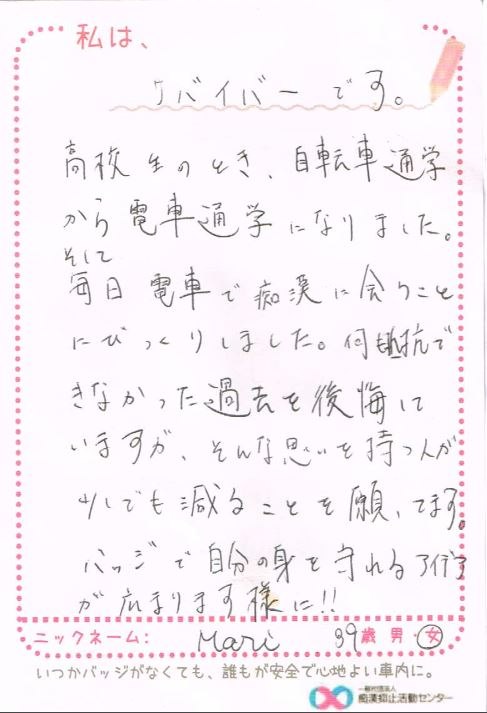 私は、
サバイバーです。
高校生のとき、自転車通学
から電車通学になりました。
そして
毎日電車で痴漢に会うこと
にびっくりしました。何も抵抗で
きなかった過去を後悔して
いますが、そんな思いを持つ人が
少しでも減ることを願ってます。
バッジで自分の身を守れるアイデア
が広まります様に!!
ニックネーム: Mari 39歳 男・女
いつかバッジがなくても、誰もが安全で心地よい車内に。
一般社団法人
痴漢抑止活動センター